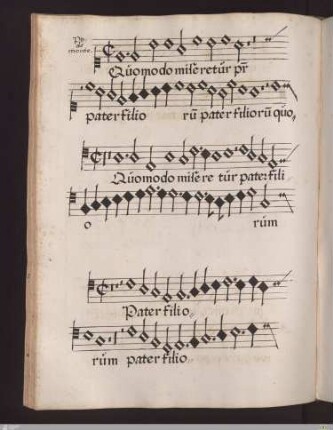 Quomodo miseretur pr̄
pater filio rū pater filiorū quo,
Quomodo misere tur pater fili
o rum
Pater filio,
rum pater filio,